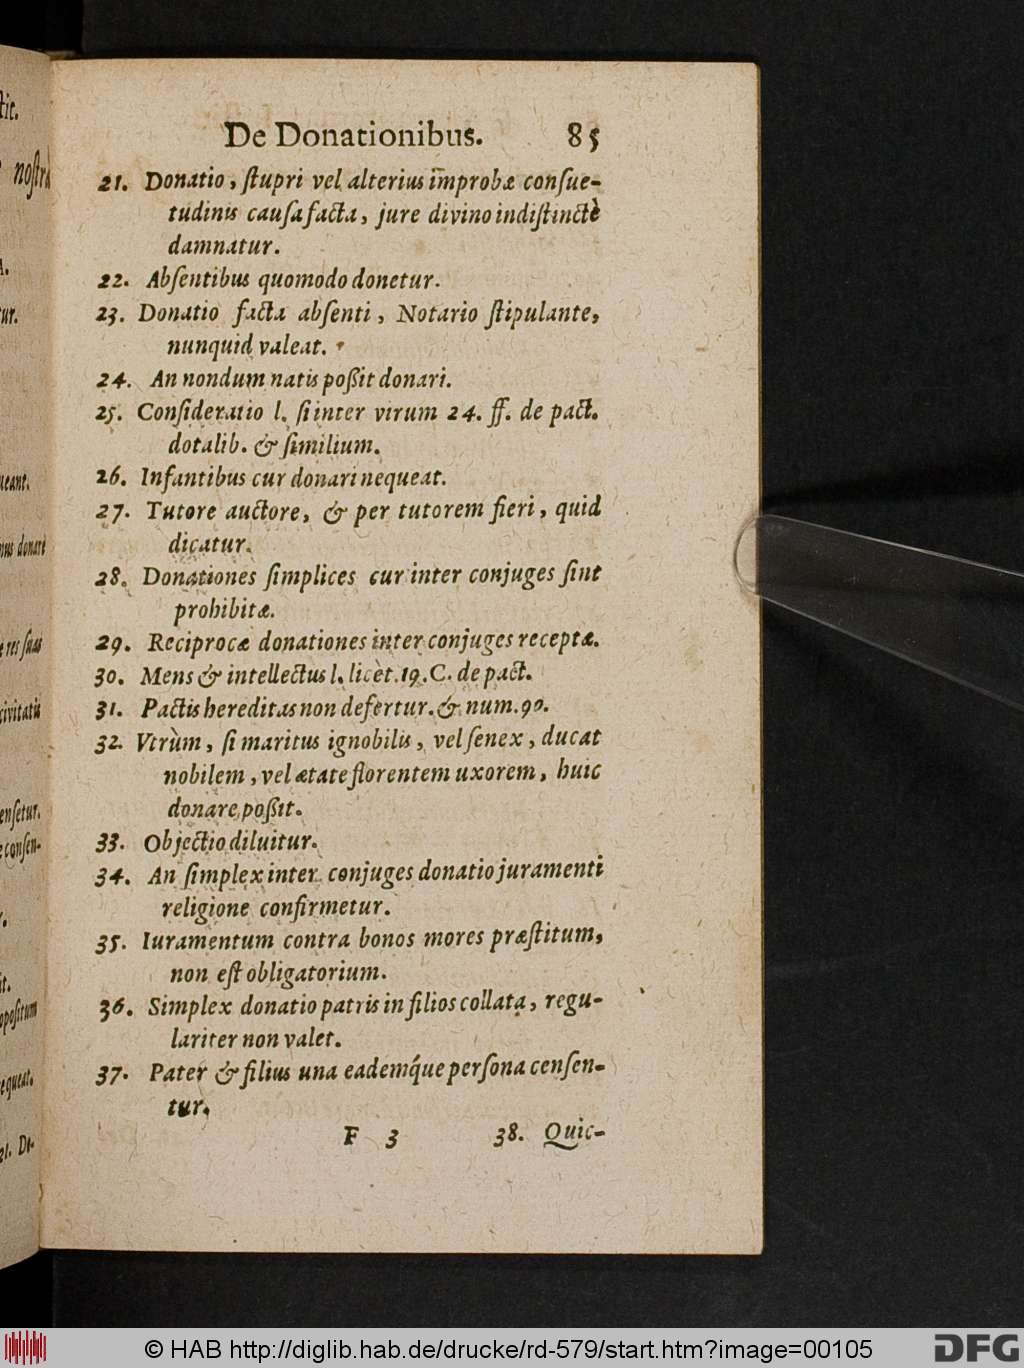 De Donationibus. 85
21. Donatio, ſtupri vel alterius improbæ conſue-
tudinis cauſa facta, jure divino indiſtinctè
damnatur.
22. Abſentibus quomodo donetur.
23. Donatio facta abſenti, Notario ſtipulante,
nunquid valeat.
24. An nondum natis poßit donari.
25. Conſideratio l. ſi inter virum 24. ff. de pact.
dotalib. & ſimilium.
26. Infantibus cur donari nequeat.
27. Tutore auctore, & per tutorem fieri, quid
dicatur.
28. Donationes ſimplices cur inter conjuges ſint
prohibitæ.
29. Reciprocæ donationes inter conjuges receptæ.
30. Mens & intellectus l. licèt. 19. C. de pact.
31. Pactis hereditas non defertur. & num. 90.
32. Vtrùm, ſi maritus ignobilis, vel ſenex, ducat
nobilem, vel ætate florentem uxorem, huic
donare poßit.
33. Objectio diluitur.
34. An ſimplex inter conjuges donatio juramenti
religione confirmetur.
35. Iuramentum contra bonos mores præſtitum,
non eſt obligatorium.
36. Simplex donatio patris in filios collata, regu-
lariter non valet.
37. Pater & filius una eademq́ue perſona cenſen-
tur.
F 3 38. Quic-
© HAB http://diglib.hab.de/drucke/rd-579/start.htm?image=00105
DFG